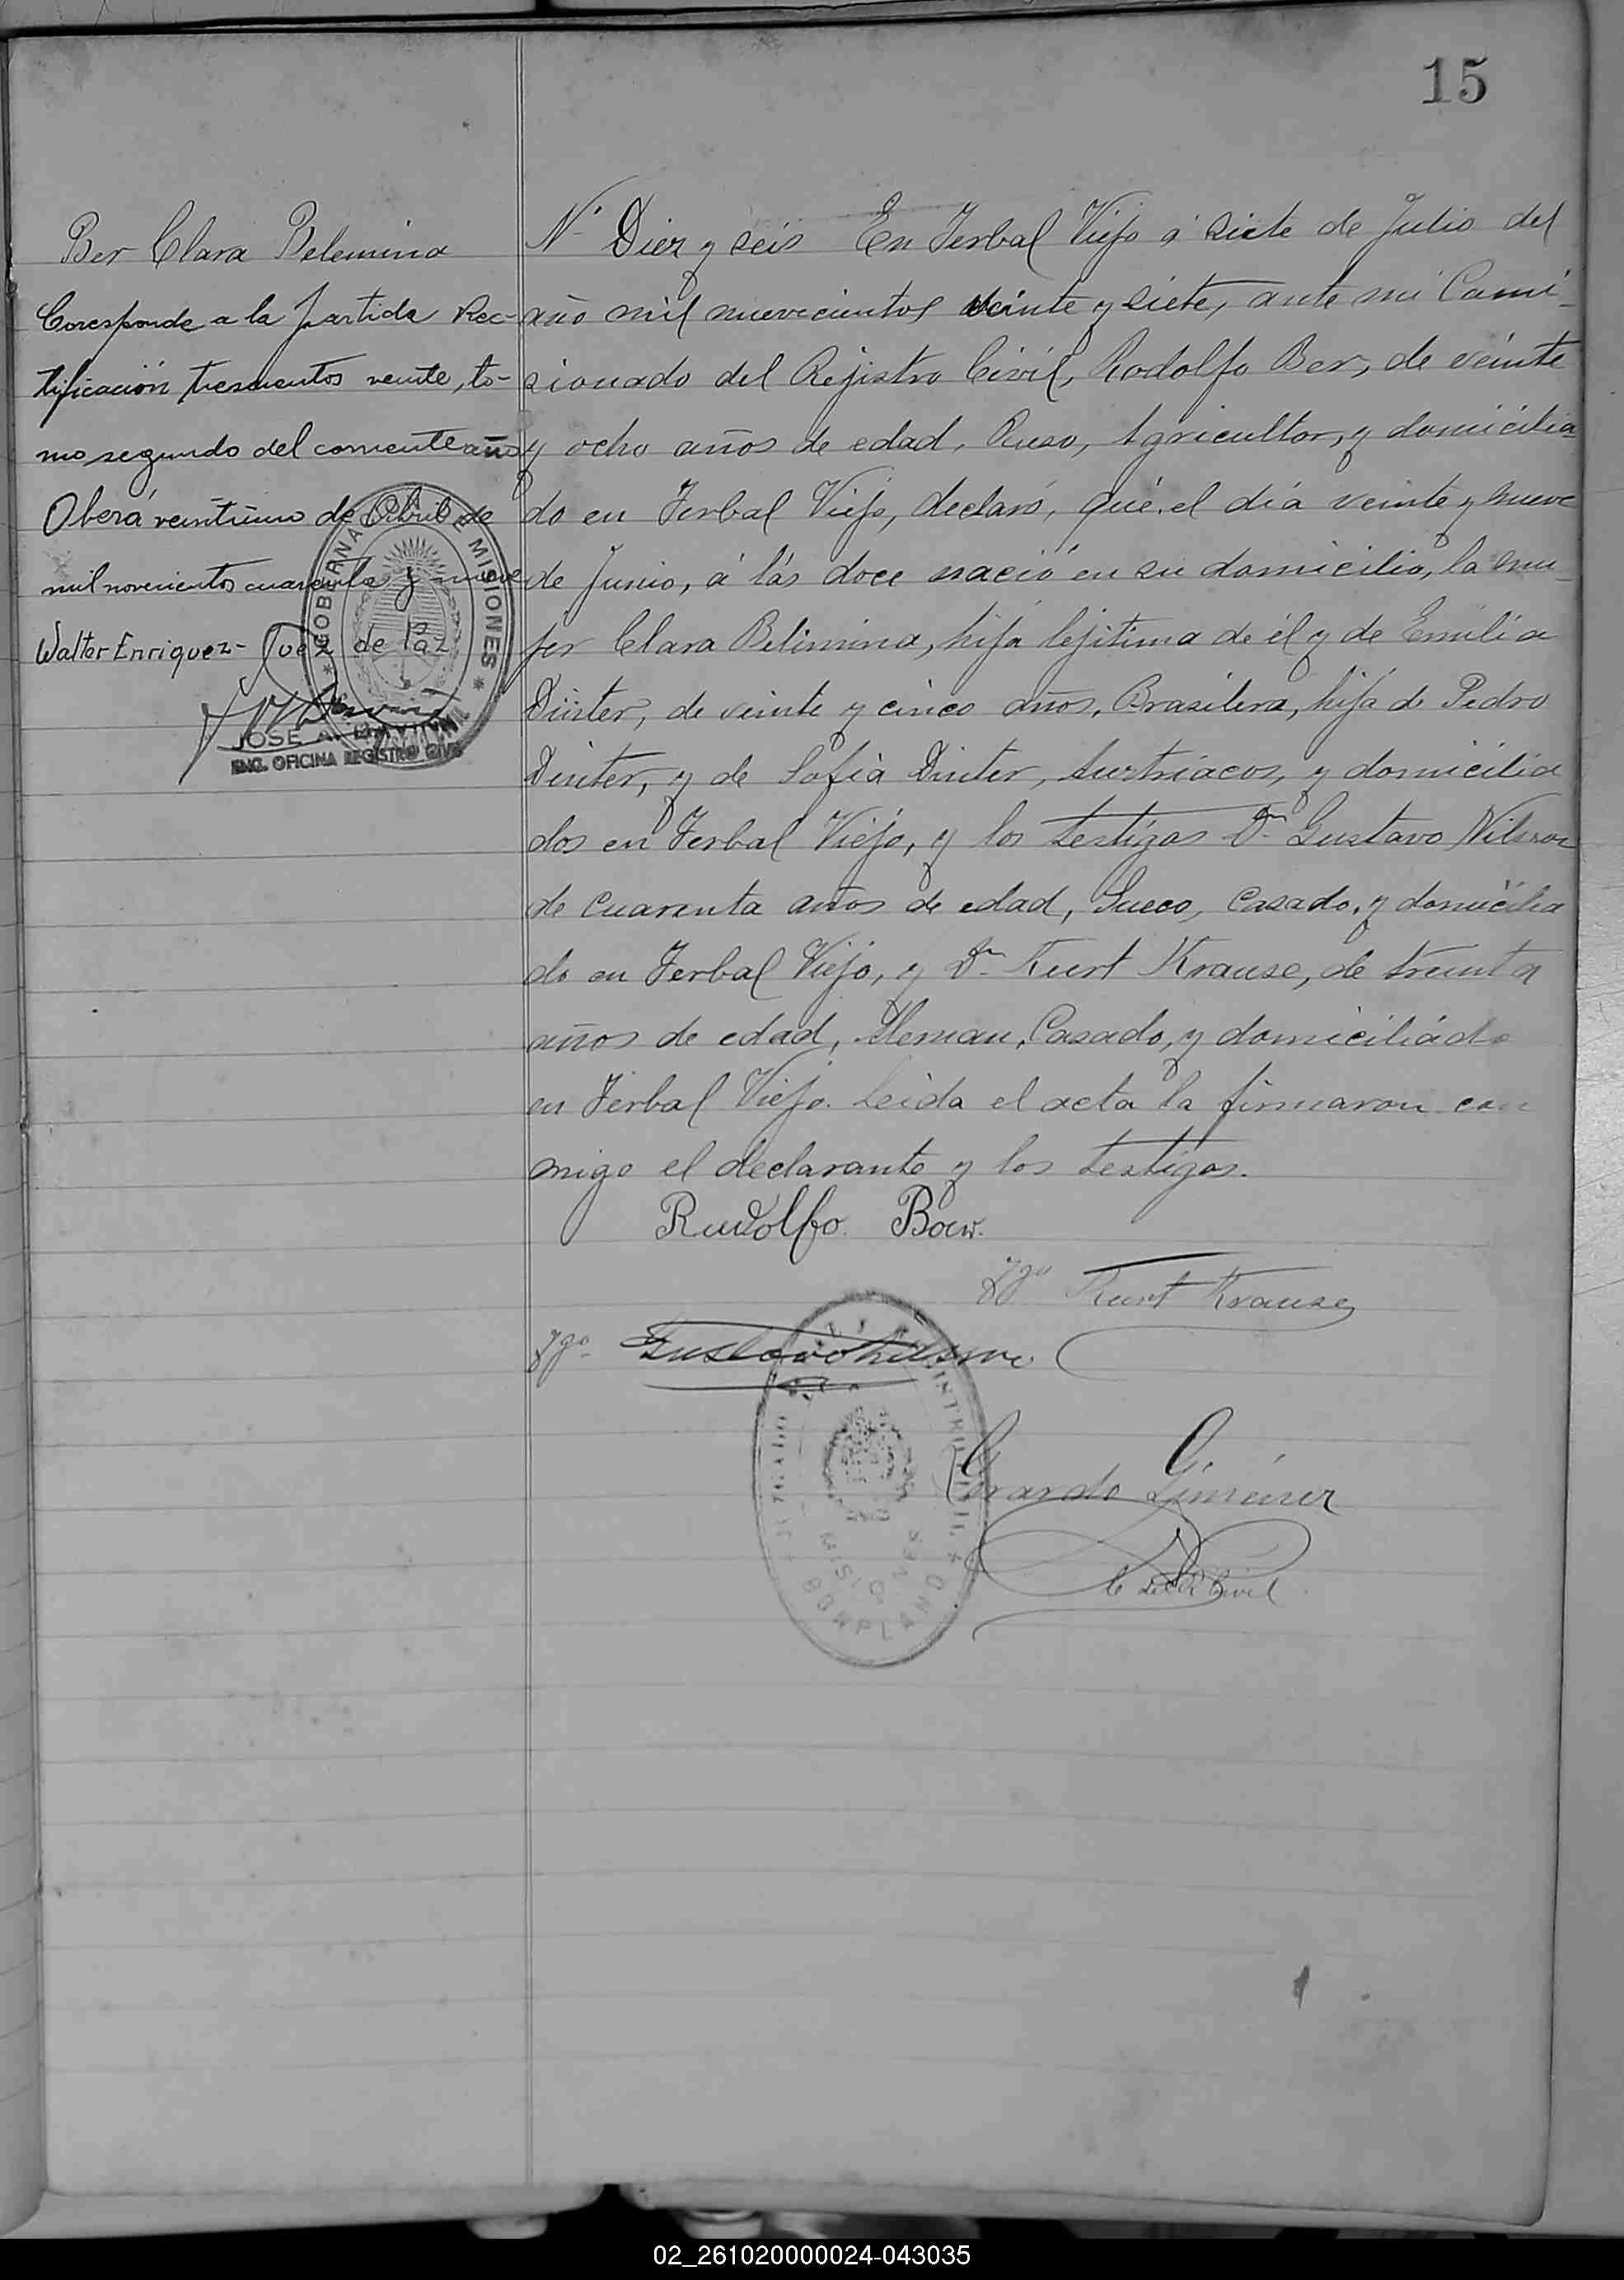 15
Ber Clara Belemina
Coresponde a la Partida Rec-
tificación trescientos veinte, to-
mo segundo del corriente año
Oberá veintiuno de Abril de
mil novecientos cuarenta y nueve
Walter Enriquez - Juez de Paz
GOBERNA MISIONES
JOSE A.
ENC. OFICINA REGISTRO CIVIL
Nº Diez y seis En Yerbal Viejo á siete de Julio del
año mil nuevecientos veinte y siete, ante mi Comi-
sionado del Rejistro Civil, Rodolfo Ber, de veinte
y ocho años de edad, Ruso, Agricultor, y domicilia-
do en Yerbal Viejo, declaró, qué el día veinte y nueve
de Junio, á lás doce nació en su domicilio, la mu-
jer Clara Belimina, hija lejitima de él y de Emilia
Dinter, de veinte y cinco años, Brasilera, hija de Pedro
Dinter, y de Sofia Dinter, Austriacos, y domicilia
dos en Yerbal Viejo, y los testigos Dn Gustavo Nilsson
de cuarenta años de edad, Sueco, Casado, y domicilia
do en Yerbal Viejo, y Dn Kurt Krause, de treinta
años de edad, Aleman, Casado, y domiciliádo
en Yerbal Viejo. Leida el acta la firmaron con
migo el declarante y los testigos.
Rudolfo Baer.
Tgo Kurt Krause
Tgo Gustavo
BONPLAND
MISIONES
Gerardo Giménez
C del R Civil
02_261020000024-043035